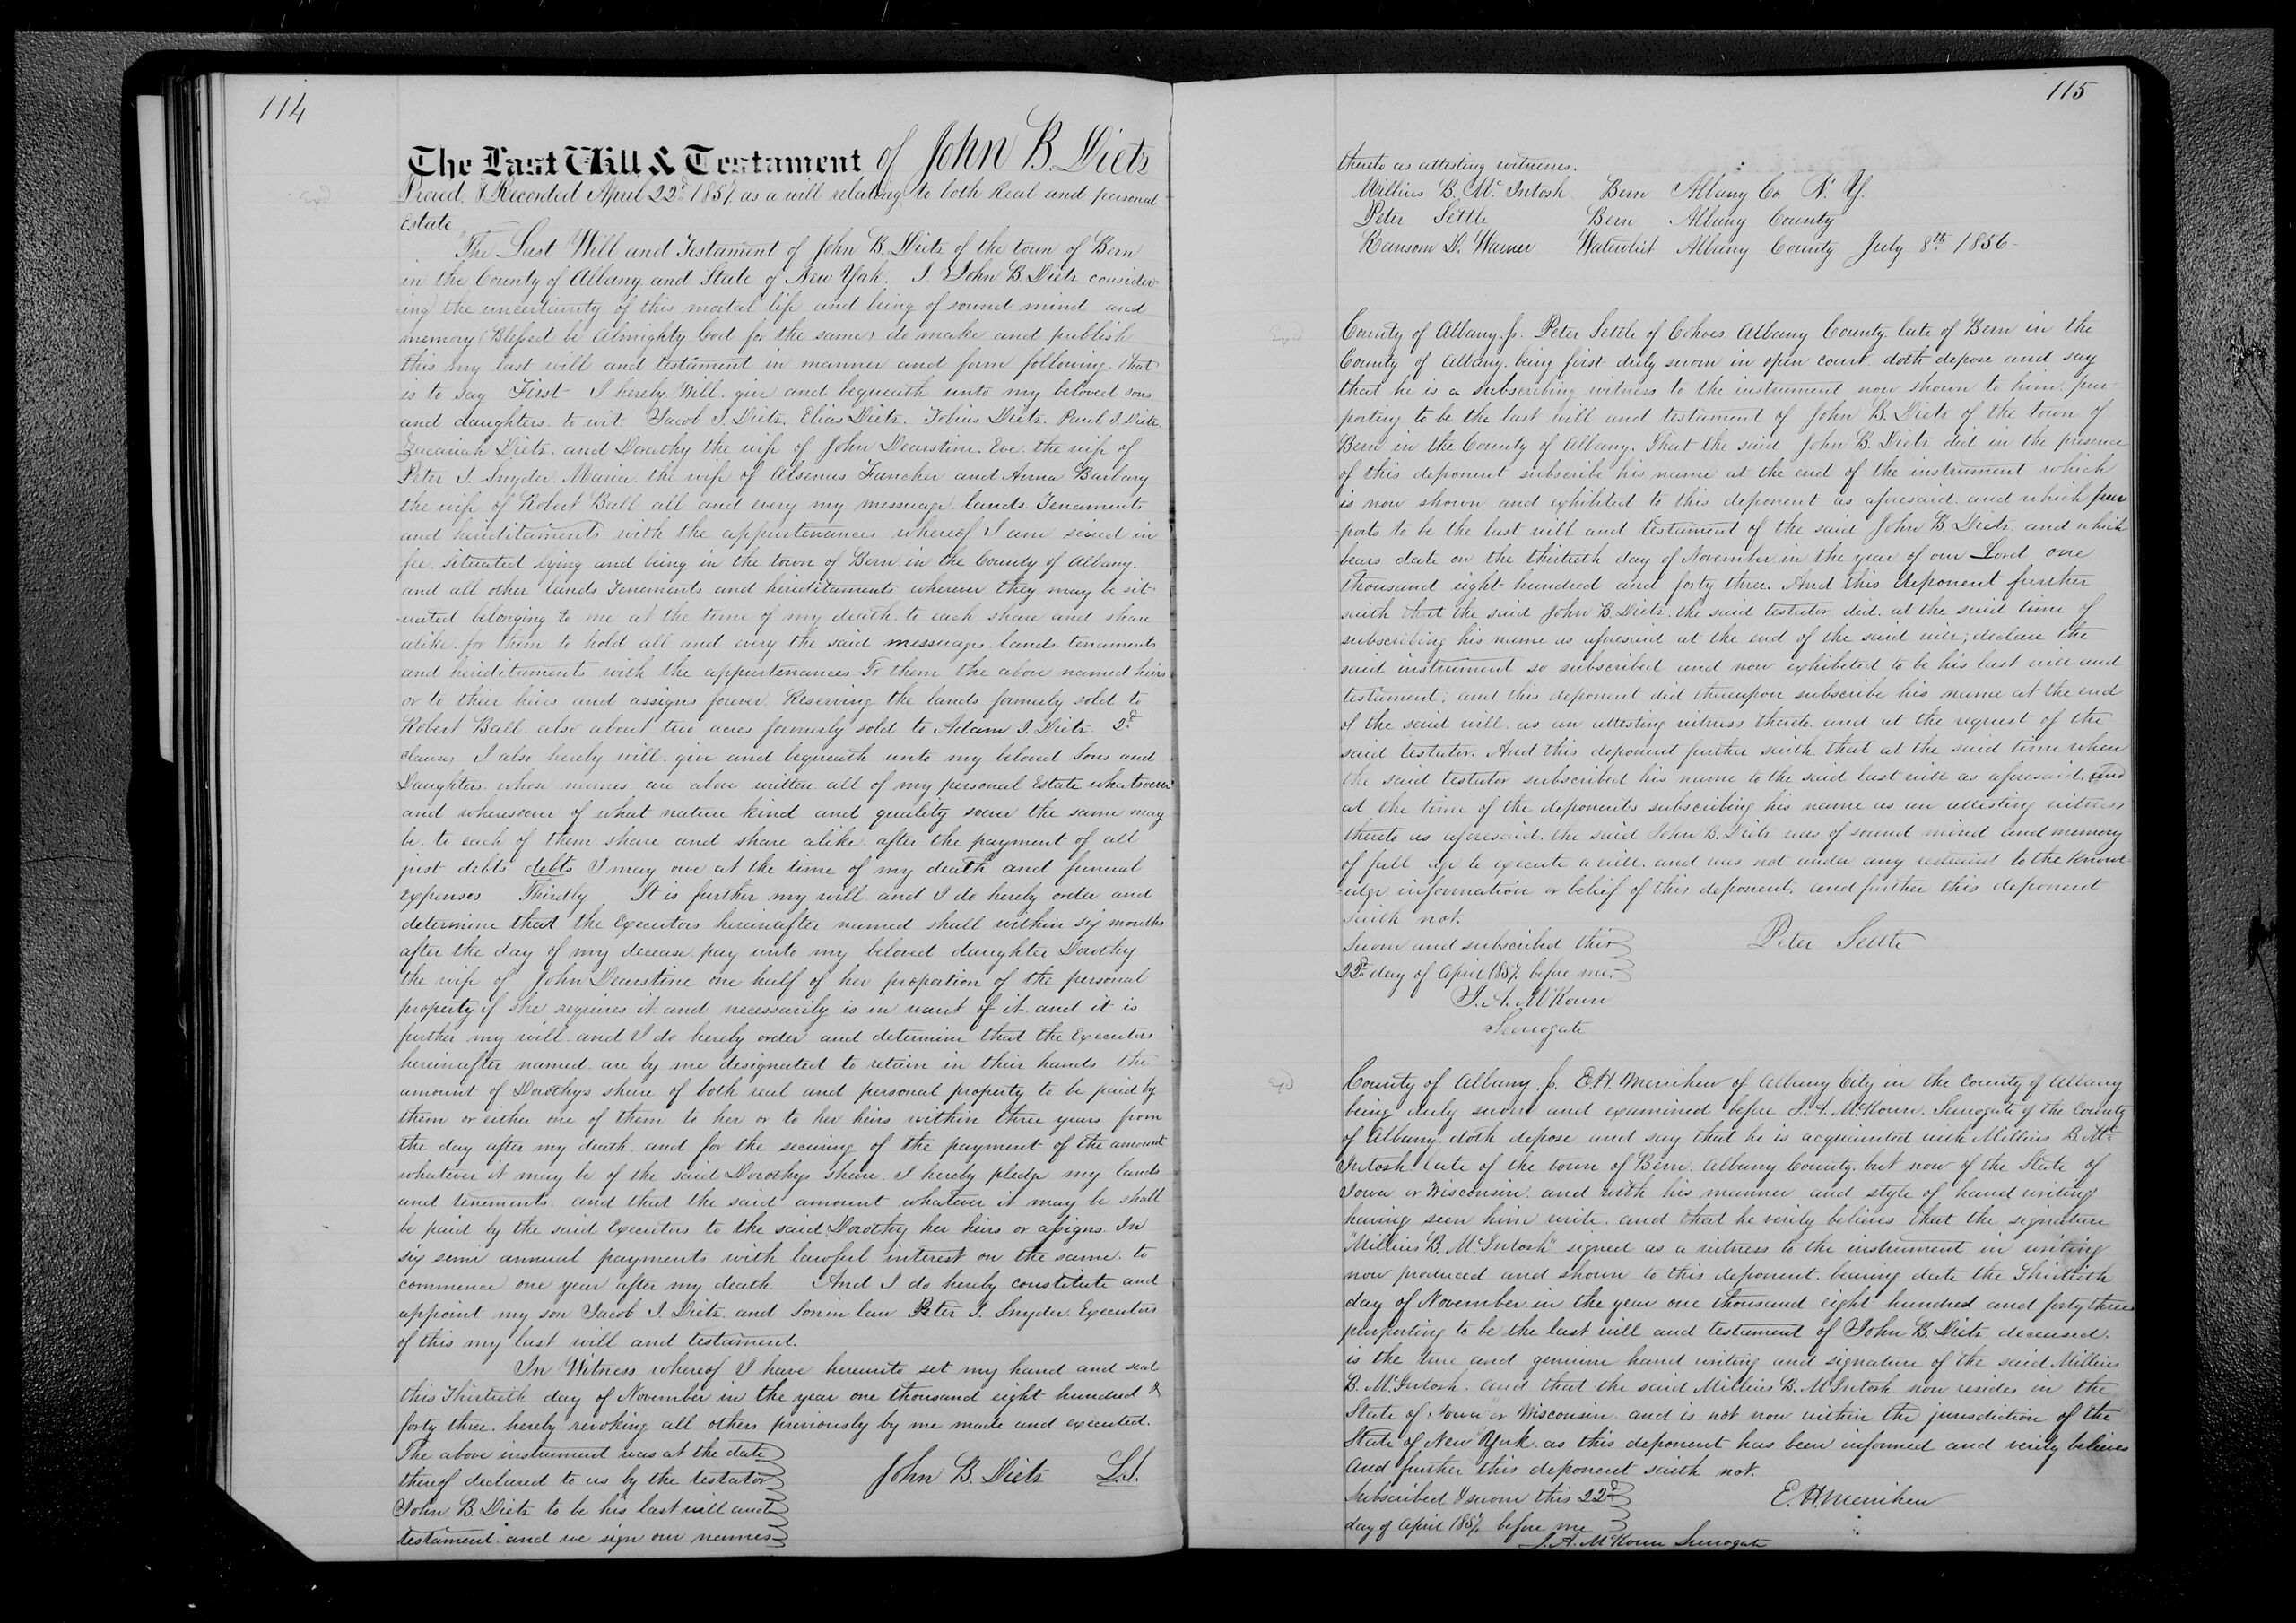 114
The Last Will & Testament of John B. Dietz
Proved & Recorded April 22d 1857. as a will relating to both Real and personal
estate
The Last Will and Testament of John B. Dietz of the town of Bern
in the County of Albany and State of New York. I. John B. Dietz consider-
ing the uncertainty of this mortal life and being of sound mind and
memory (Blessed be Almighty God for the same) do make and publish
this my last will and testament in manner and form following. that
is to say First I hereby Will. give and bequeath unto my beloved sons
and daughters. to wit. Jacob J. Dietz. Elias Dietz. Tobias Dietz. Paul J. Dietz.
Zacariah Dietz. and Dorathy the wife of John Dearstine. Eve. the wife of
Peter J. Snyder. Maria. the wife of Alsenus Fancher and Anna Barbary
the wife of Robert Ball all and every my messuage. lands. Tenaments
and hereditaments with the appurtenances whereof I am seized in
fee. situated lying and being in the town of Bern in the County of Albany.
and all other lands Tenaments and hereditaments wherever they may be sit-
uated belonging to me at the time of my death. to each share and share
alike. for them to hold all and every the said messuages. lands. tenaments
and hereditaments with the appurtenances. To them the above named heirs
or to their heirs and assigns forever. Reserving the lands formerly sold to
Robert Ball. also about two acres formerly sold to Adam J. Dietz. 2d
clause I also hereby will. give and bequeath unto my beloved Sons and
Daughters. whose names are above written. all of my personal Estate whatsoever
and wheresoever of what nature kind and quality soever the same may
be. to each of them share and share alike. after the payment of all
just debts debts I may owe at the time of my death and funeral
expenses Thirdly It is further my will and I do hereby order and
determine that the Executors hereinafter named shall within six months
after the day of my decease. pay unto my beloved daughter Dorothy
the wife of John Dearstine one half of her proportion of the personal
property if she requires it and necessarily is in want of it. and it is
further my will. and I do hereby order and determine that the Executors
hereinafter named are by me designated to retain in their hands the
amount of Dorothys share of both real and personal property to be paid by
them or either one of them to her or to her heirs within three years from
the day after my death. and for the securing of the payment of the amount
whatever it may be of the said Dorothys share. I hereby pledge my lands
and tenements. and that the said amount whatever it may be shall
be paid by the said Executors to the said Dorothy her heirs or assigns. In
six semi annual payments with lawful interest on the same. to
commence one year after my death. And I do hereby constitute and
appoint my son Jacob J. Dietz. and Son in law Peter J. Snyder. Executors
of this my last will and testament.
In Witness whereof I have hereunto set my hand and seal
this Thirtieth day of November in the year one thousand eight hundred &
forty three. hereby revoking all others previously by me made and executed.
The above instrument was at the date
thereof declared to us by the testator
John B. Dietz L.S.
John B. Dietz to be his last will and
testament. and we sign our names
115
thereto as attesting witnesses.
Millius B. McIntosh Bern Albany Co. N. Y.
Peter Settle Bern Albany County
Ransom D. Warner Watervliet Albany County July 8th 1856
County of Albany. ss. Peter Settle of Cohoes Albany County. late of Bern in the
County of Albany. being first duly sworn in open court doth depose and say
that he is a subscribing witness to the instrument now shown to him. pur-
porting to be the last will and testament of John B. Dietz of the town of
Bern in the County of Albany. That the said John B. Dietz did in the presence
of this deponent subscribe his name at the end of the instrument which
is now shown and exhibited to this deponent as aforesaid. and which pur
-ports to be the last will and testament of the said John B Dietz. and which
bears date on the thirtieth day of November in the year of our Lord one
thousand eight hundred and forty three. And this deponent further
saith that the said John B. Dietz. the said testator did. at the said time of
subscribing his name as aforesaid at the end of the said will; declare the
said instrument so subscribed and now exhibited to be his last will and
testament; and this deponent did thereupon subscribe his name at the end
of the said will. as an attesting witness thereto. and at the request of the
said testator. And this deponent further saith that at the said time when
the said testator subscribed his name to the said last will as aforesaid. and
at the time of the deponents subscribing his name as an attesting witness
thereto as aforesaid. the said John B. Dietz was of sound mind and memory
of full age to execute a will. and was not under any restraint to the knowl-
edge information or belief of this deponent. and further this deponent
saith not.
Peter Settle
Sworn and subscribed this
22d day of April 1857. before me.
J. A. McKown
Surrogate
County of Albany. ss. E. H. Merrihew of Albany City in the County of Albany
being duly sworn and examined before J. A. McKown. Surrogate of the County
of Albany. doth depose and say that he is acquainted with Millius B. Mc
Intosh late of the town of Bern. Albany County. but now of the State of
Iowa or Wisconsin. and with his manner and style of hand writing
having seen him write. and that he verily believes that the signature
"Millius B. McIntosh" signed as a witness to the instrument in writing
now produced and shown to this deponent. bearing date the Thirtieth
day of November in the year one thousand eight hundred and forty three
purporting to be the last will and testament of John B. Dietz. deceased.
is the true and genuine hand writing and signature of the said Millius
B. McIntosh. and that the said Millius B. McIntosh now resides in the
State of Iowa or Wisconsin. and is not now within the jurisdiction of the
State of New York. as this deponent has been informed and verily believes
and further this deponent saith not.
Subscribed & sworn this 22d
E. H. Merrihew
day of April 1857. before me
J. A. McKown Surrogate